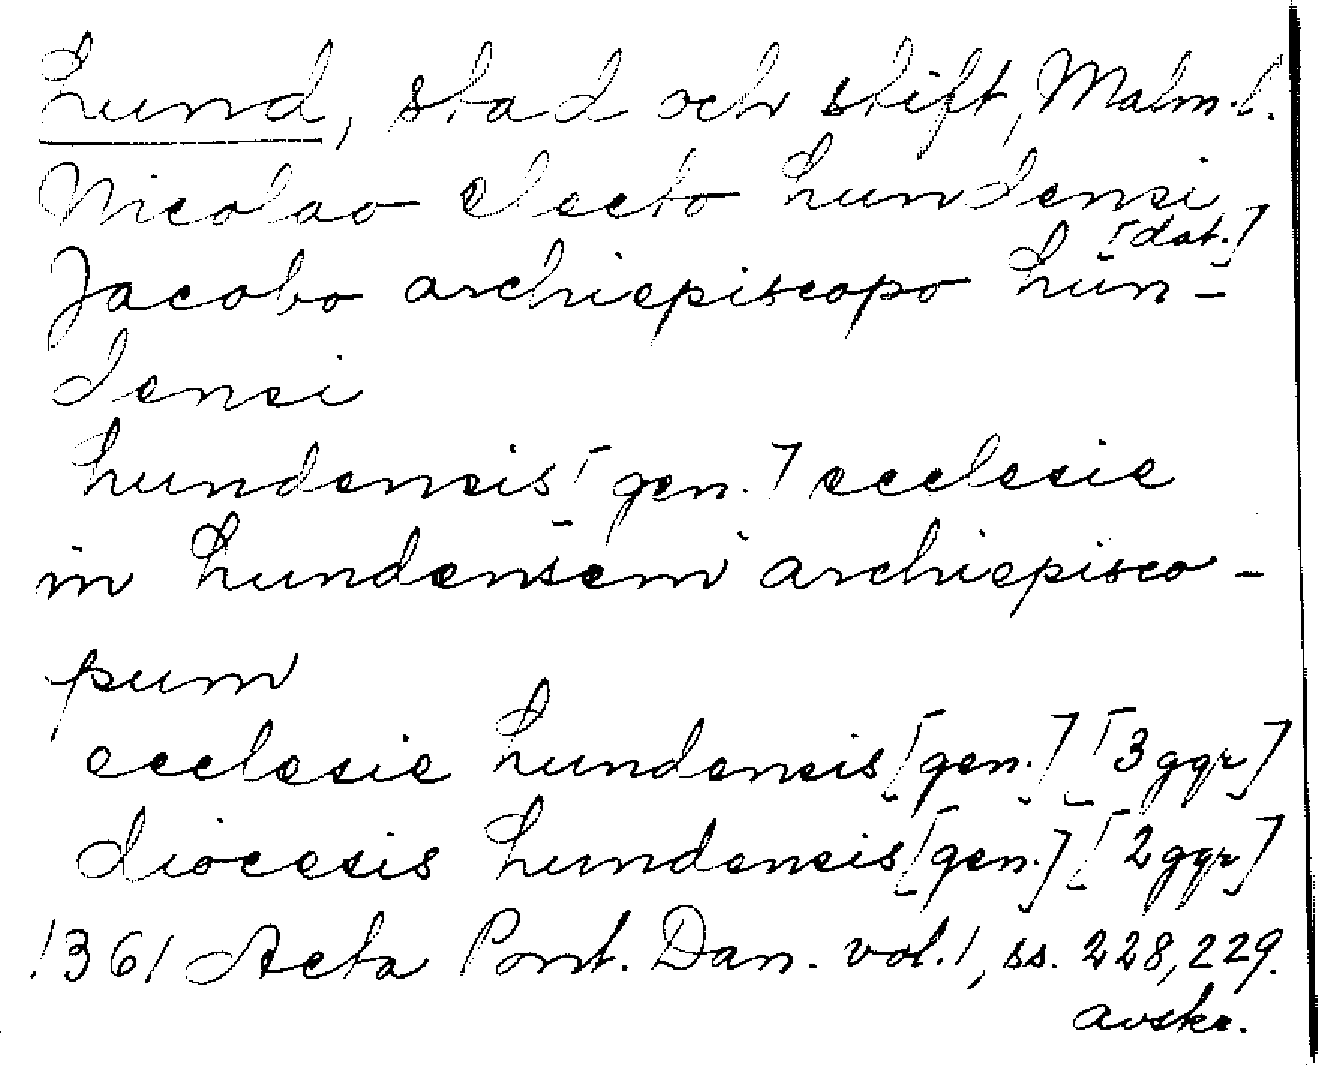 Lund, stad och stift, Malm.l.
Nicolao electo Lundensi
[dat.]
Jacobo archiepiscopo Lun-
densi
Lundensis [gen.] ecclesie
in Lundensem archiepisco-
pum
ecclesie Lundensis [gen.] [3 ggr]
diocesis Lundensis [gen.] [2 ggr]
1361 Acta Pont. Dan. vol. 1, ss. 228, 229.
avskr.